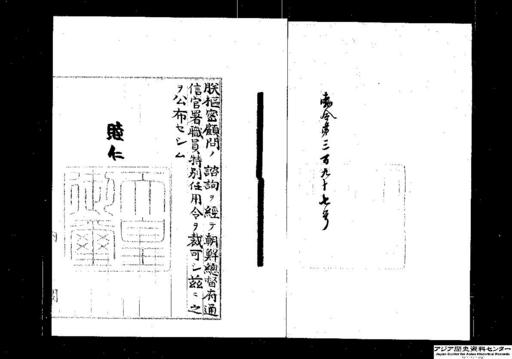 勅令第三百九十七号
朕枢密顧問ノ諮詢ヲ経テ朝鮮総督府通
信官署職員特別任用令ヲ裁可シ茲ニ之
ヲ公布セシム
睦仁
天皇
御璽
アジア歴史資料センター
Japan Center for Asian Historical Records